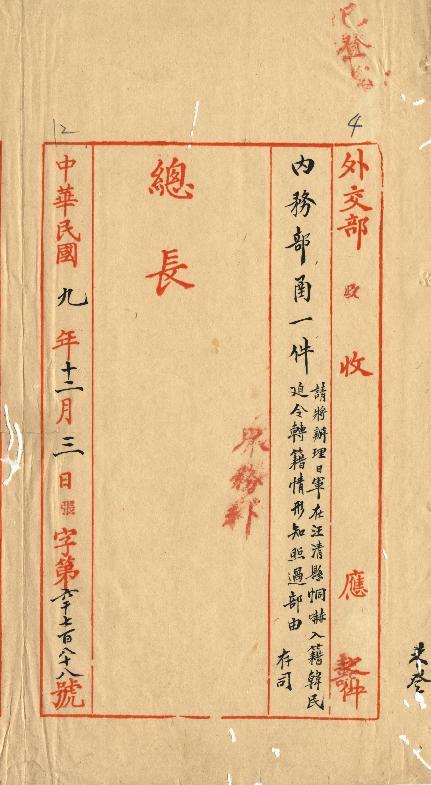 4
12
外交部 收 收 應
內務部函一件
請將辦理日軍在汪清縣恫嚇入籍韓民
迫令轉籍情形知照過部由
存司
總長
中華民國九年十二月三日張字第六千七百八十八號